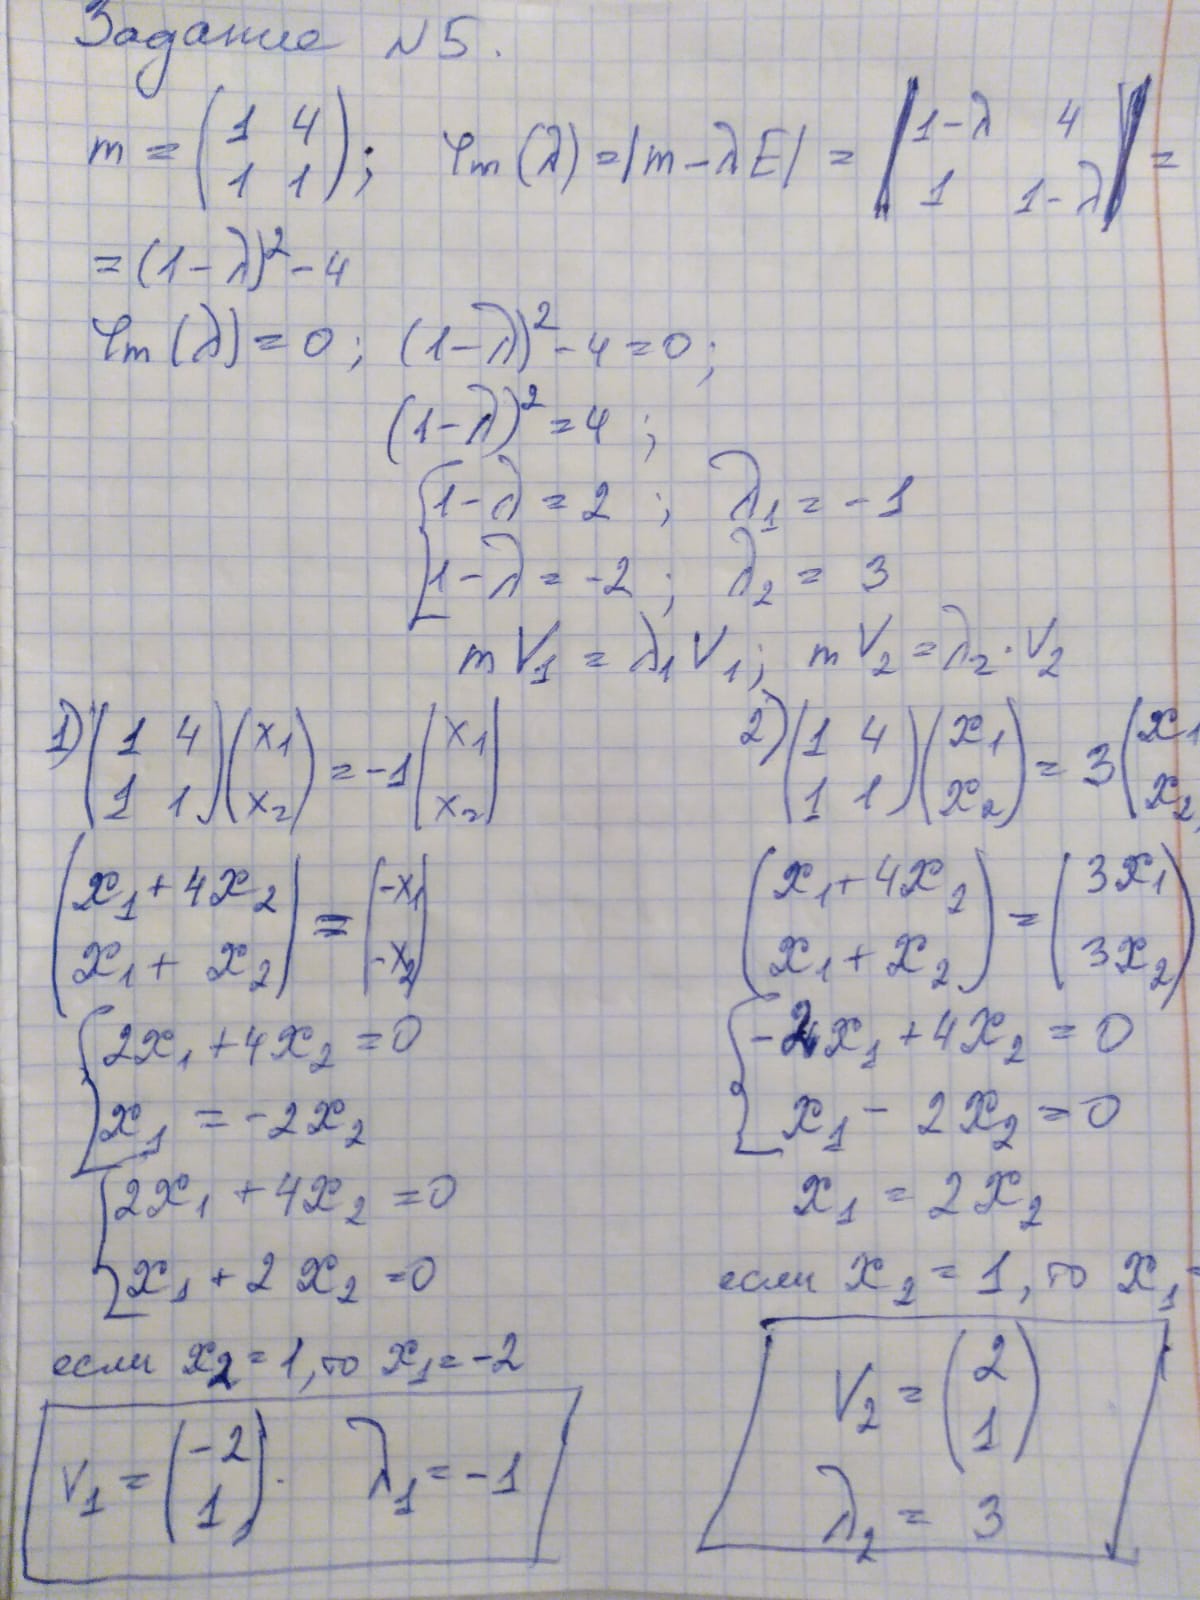 Задание №5.
m = (1 4; 1 1); φm(λ) = |m - λE| = |1-λ 4; 1 1-λ| =
= (1-λ)² - 4
φm(λ) = 0; (1-λ)² - 4 = 0;
(1-λ)² = 4;
[1-λ = 2; λ₁ = -1
[1-λ = -2; λ₂ = 3
mV₁ = λ₁V₁; mV₂ = λ₂·V₂
1) (1 4; 1 1)(x₁; x₂) = -1(x₁; x₂)
(x₁ + 4x₂; x₁ + x₂) = (-x₁; -x₂)
{2x₁ + 4x₂ = 0
x₁ = -2x₂
{2x₁ + 4x₂ = 0
x₁ + 2x₂ = 0
если x₂ = 1, то x₁ = -2
V₁ = (-2; 1). λ₁ = -1
2) (1 4; 1 1)(x₁; x₂) = 3(x₁; x₂)
(x₁ + 4x₂; x₁ + x₂) = (3x₁; 3x₂)
{-2x₁ + 4x₂ = 0
x₁ - 2x₂ = 0
x₁ = 2x₂
если x₂ = 1, то x₁ =
V₂ = (2; 1)
λ₂ = 3